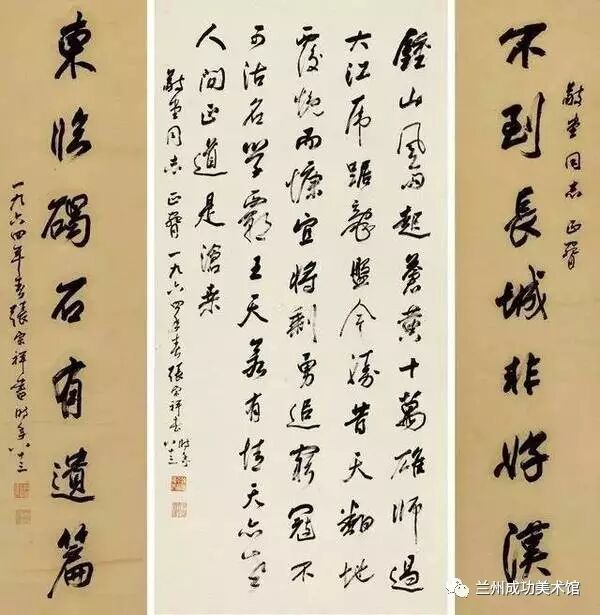 不到長城非好漢
堂同志 正
鍾山風雨起蒼黃十萬雄師過
大江虎踞龍盤今勝昔天翻地
覆慨而慷宜將剩勇追窮寇不
可沽名學霸王天若有情天亦老
人間正道是滄桑
堂同志 正 一九六四年春張宗祥書 時年八十三
東臨碣石有遺篇
一九六四年春張宗祥書 時年八十三
兰州成功美术馆